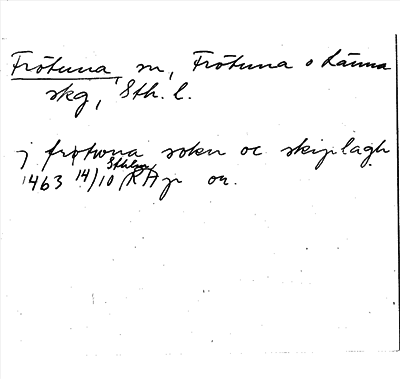 Frötuna, sn, Frötuna o Länna
skg, Sth. l.
j frøtwna sokn oc skiplagh
1463 14/10 Sthlm RAp or.